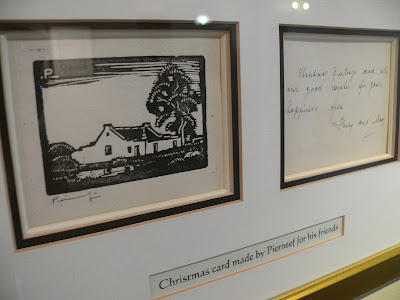 P
Pierneef
Christmas Greetings and all
our good wishes for your
happiness from
Henry and May
Christmas card made by Pierneef for his friends